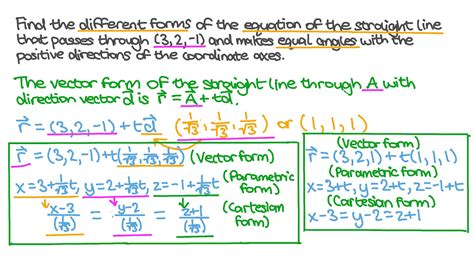 Find the different forms of the equation of the straight line
that passes through (3, 2, -1) and makes equal angles with the
positive directions of the coordinate axes.
The vector form of the straight line through A with
direction vector d⃗ is r⃗ = A⃗ + td⃗.
r⃗ = (3, 2, -1) + td⃗ (1/√3, 1/√3, 1/√3) or (1, 1, 1)
r⃗ = (3, 2, -1) + t(1/√3, 1/√3, 1/√3) (Vector form)
x = 3 + 1/√3 t, y = 2 + 1/√3 t, z = -1 + 1/√3 t (Parametric form)
x-3/(1/√3) = y-2/(1/√3) = z+1/(1/√3) (Cartesian form)
(Vector form)
r⃗ = (3, 2, 1) + t(1, 1, 1)
(Parametric form)
x = 3+t, y = 2+t, z = -1+t
(Cartesian form)
x - 3 = y - 2 = z + 1